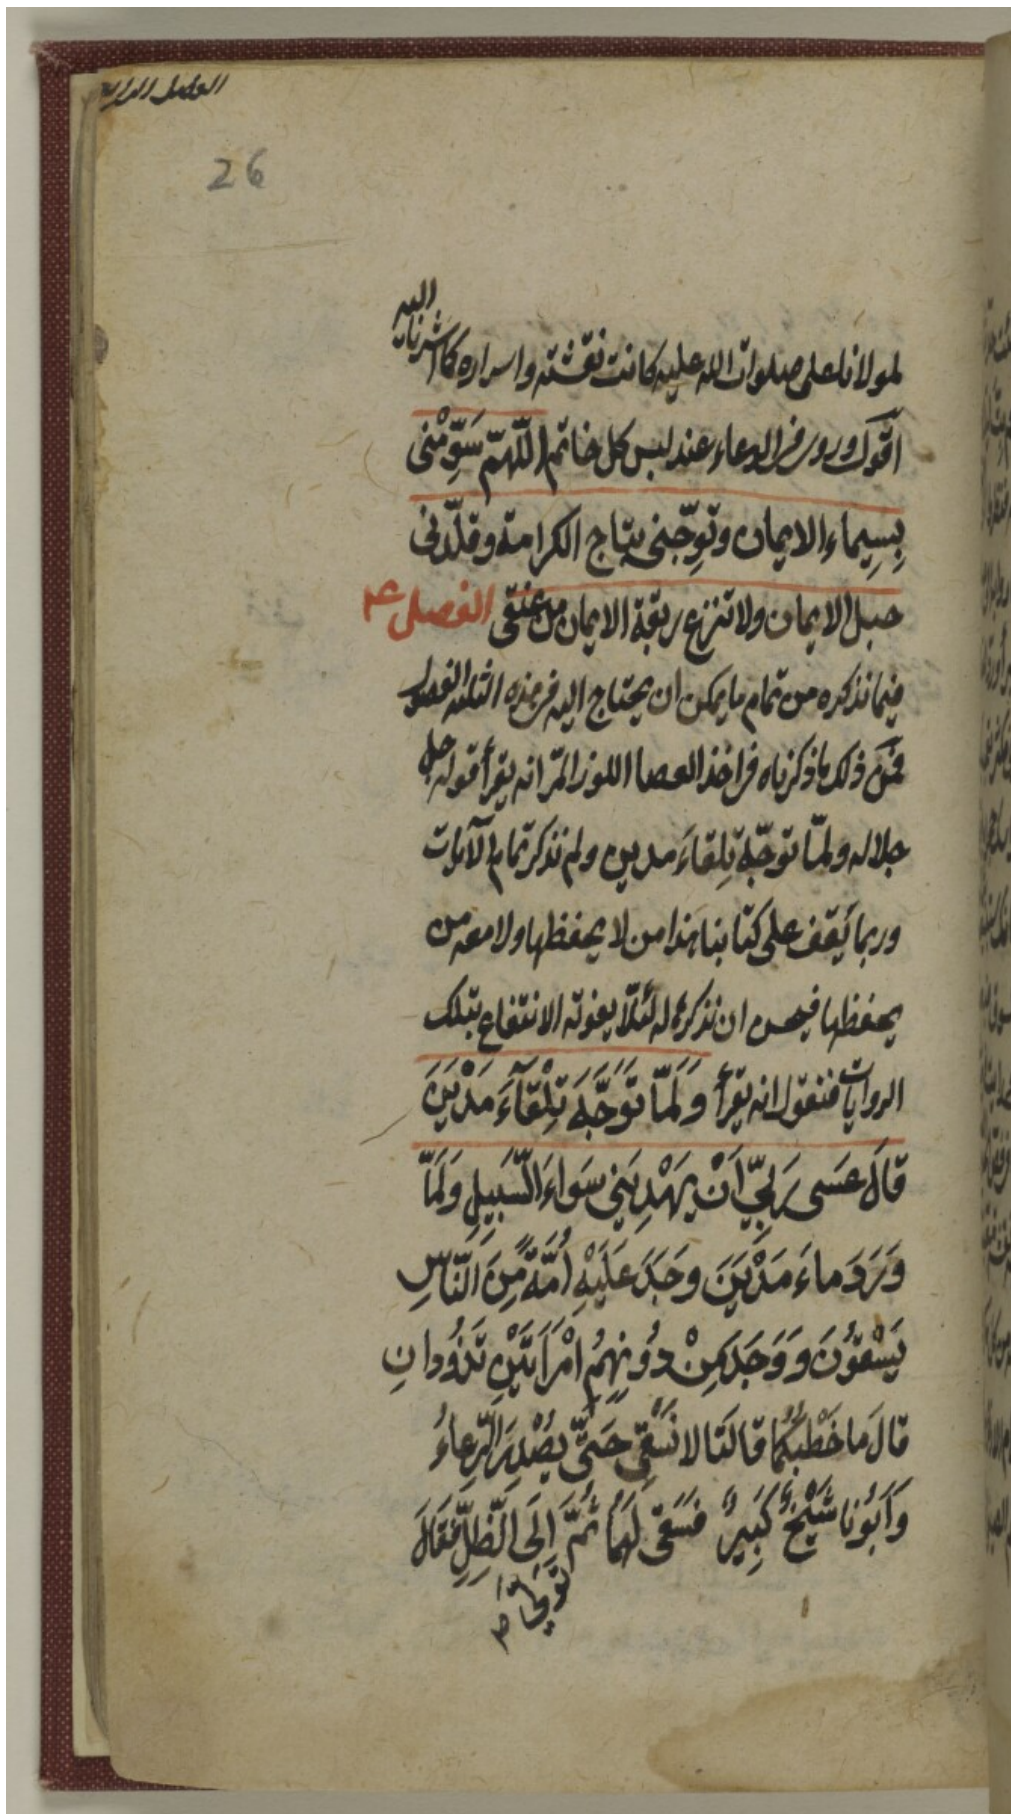 الفصل الرابع
26
لمولانا علی صلوات الله علیه کانت نقشته واسراره کما اشرنا الیه
اقول وروی فی الدعاء عند لبس کل خاتم اللّهمّ سَوِّمْنی
بِسِیماء الایمان وتوّجنی بتاج الکرامة وقلّدنی
حبل الایمان ولا تنزع ربقة الایمان من عنقی الفصل ٤
فیما نذکره من تمام ما یمکن ان یحتاج الیه فی هذه الثلثه الفصول
فمن ذلک ما ذکرناه فی اخذ العصا اللوز المرّ انه یقرأ قوله جل
جلاله ولمّا توجّه تِلقاءَ مدین ولم نذکر تمام الآیات
وربما یَقف علی کتابنا هذا من لا یحفظها ولا معه من
یحفظها فیحسن ان نذکره له لئلّا یفوته الانتفاع بتلک
الروایات فنقول انه یقرأ وَلَمّا تَوَجَّهَ تِلْقآءَ مَدْیَنَ
قالَ عَسَی رَبِّیّ اَنْ یَهْدِیَنِی سَواءَ السَّبِیلِ وَلَمَّا
وَرَدَ ماءَ مَدْیَنَ وَجَدَ عَلَیْهِ اُمَّةً مِّنَ النَّاسِ
یَسْقُونَ وَوَجَدَ مِنْ دُونِهِمُ امْرَاَتَیْنِ تَذُودانِ
قالَ مَا خَطْبُکُما قالَتَا لا نَسْقِی حَتّیٰ یُصْدِرَ الرِّعاءُ
وَاَبُونا شَیْخٌ کَبِیرٌ فَسَقٰی لَهُمَا ثُمَّ اِلَی الظِّلِّ فَقالَ
تَوَلّیٰ